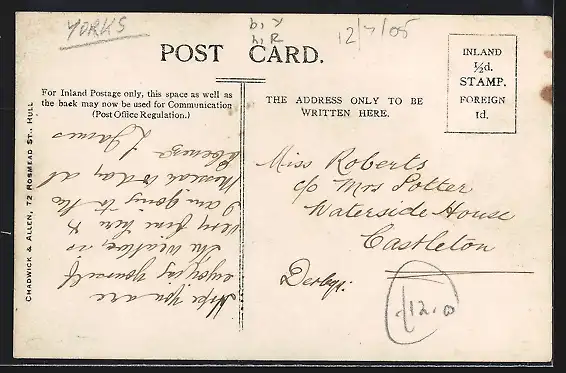 YORKS
12/7/05
POST CARD.
For Inland Postage only, this space as well as
the back may now be used for Communication
(Post Office Regulation.)
THE ADDRESS ONLY TO BE
WRITTEN HERE.
INLAND
½d.
STAMP.
FOREIGN
1d.
CHADWICK & ALLEN, 72 ROSMEAD ST., HULL
Hope you are
enjoying yourself
the weather is
very fine here &
I am going to the
to day at
L James
Miss Roberts
c/o Mrs Potter
Waterside House
Castleton
Derbys:
12.0